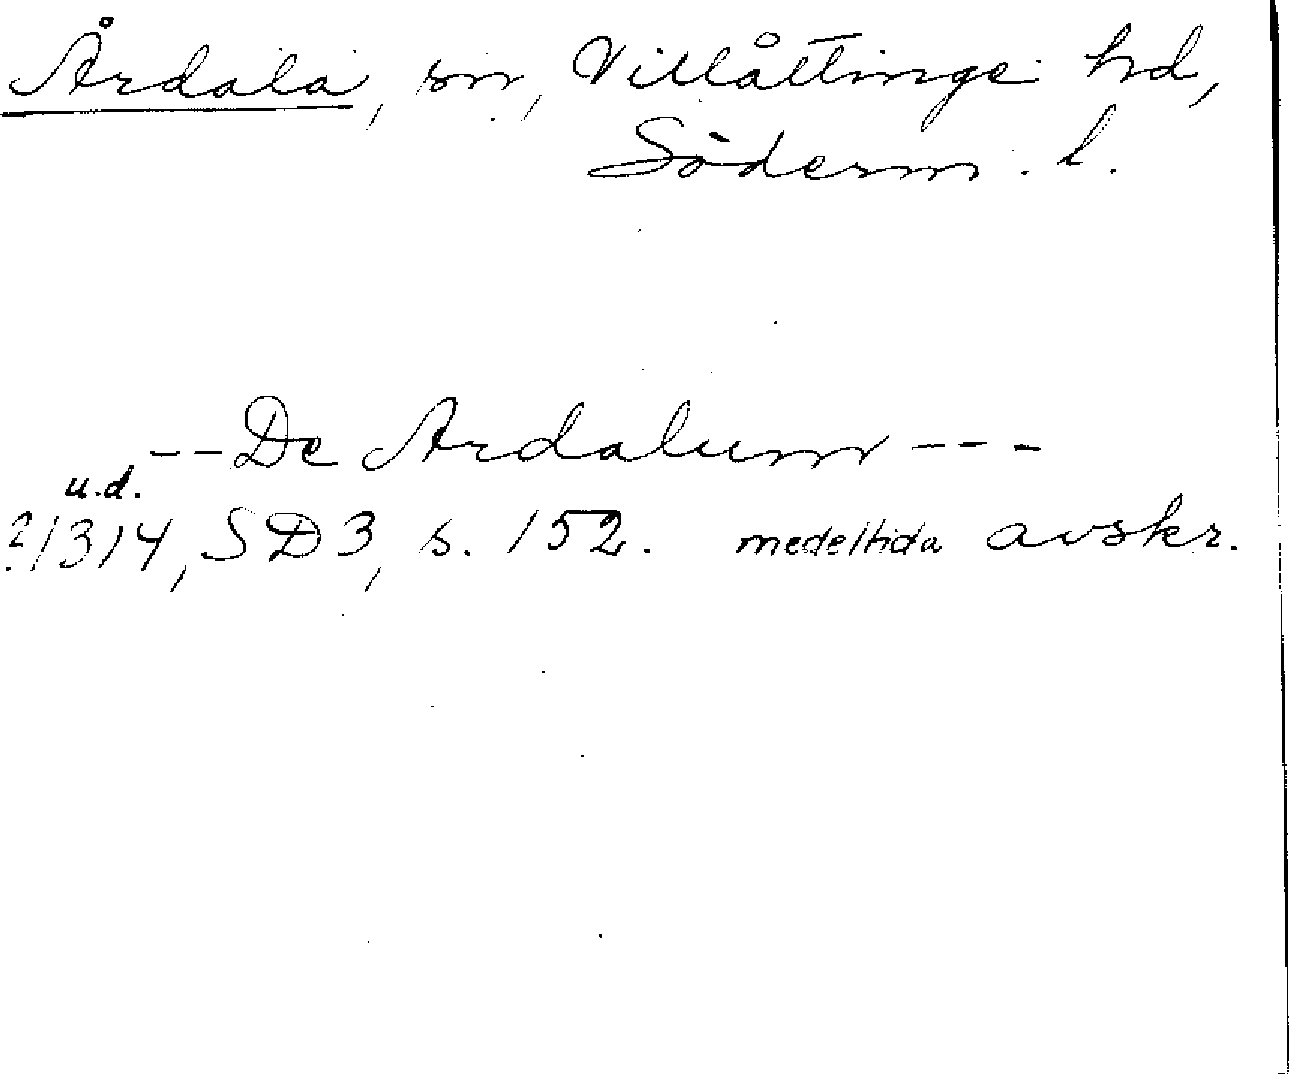 Årdala, sn, Villåttinge hd,
Söderm. l.
--De Ardalum---
u.d.
?/1314, SD3, s. 152. medeltida avskr.